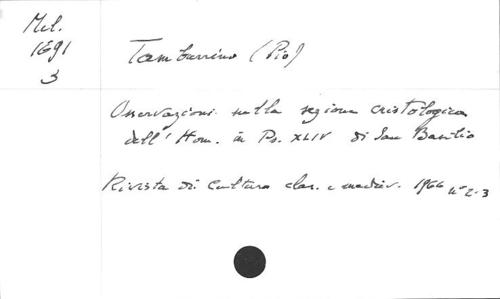 Mel.
1691
3
Tamburrino (Pio)
Osservazioni sulla sezione cristologica
dell' Hom. in Ps. XLIV di San Basilio
Rivista di Cultura clas. e mediev. 1966 n° 2-3